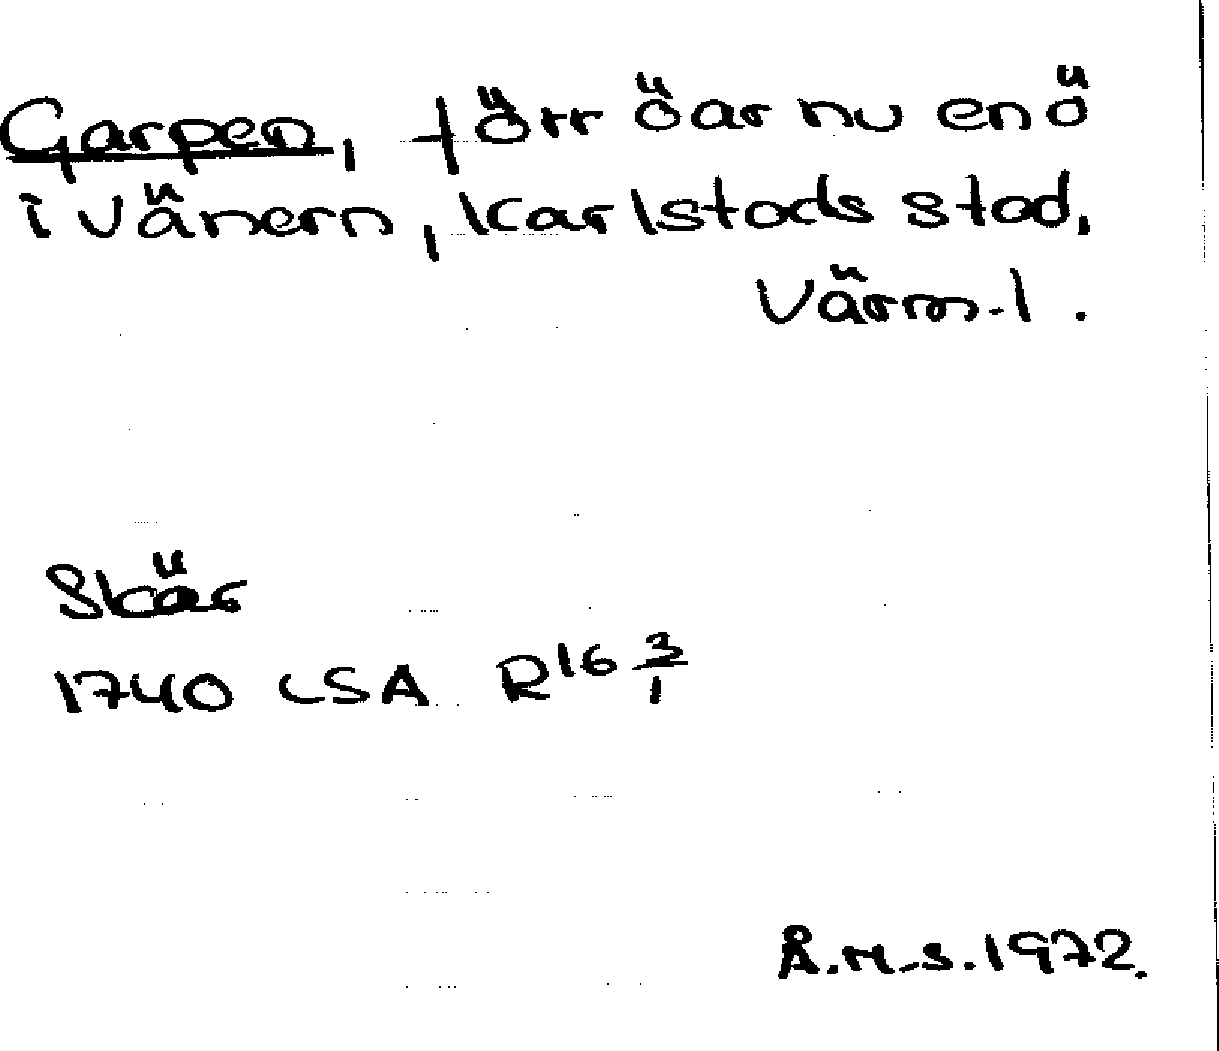 Garpen, förr öar nu en ö
i Vänern, Karlstads stad,
Värml.
Skär
1740 LSA R16 3/1
Å.H-S. 1972.